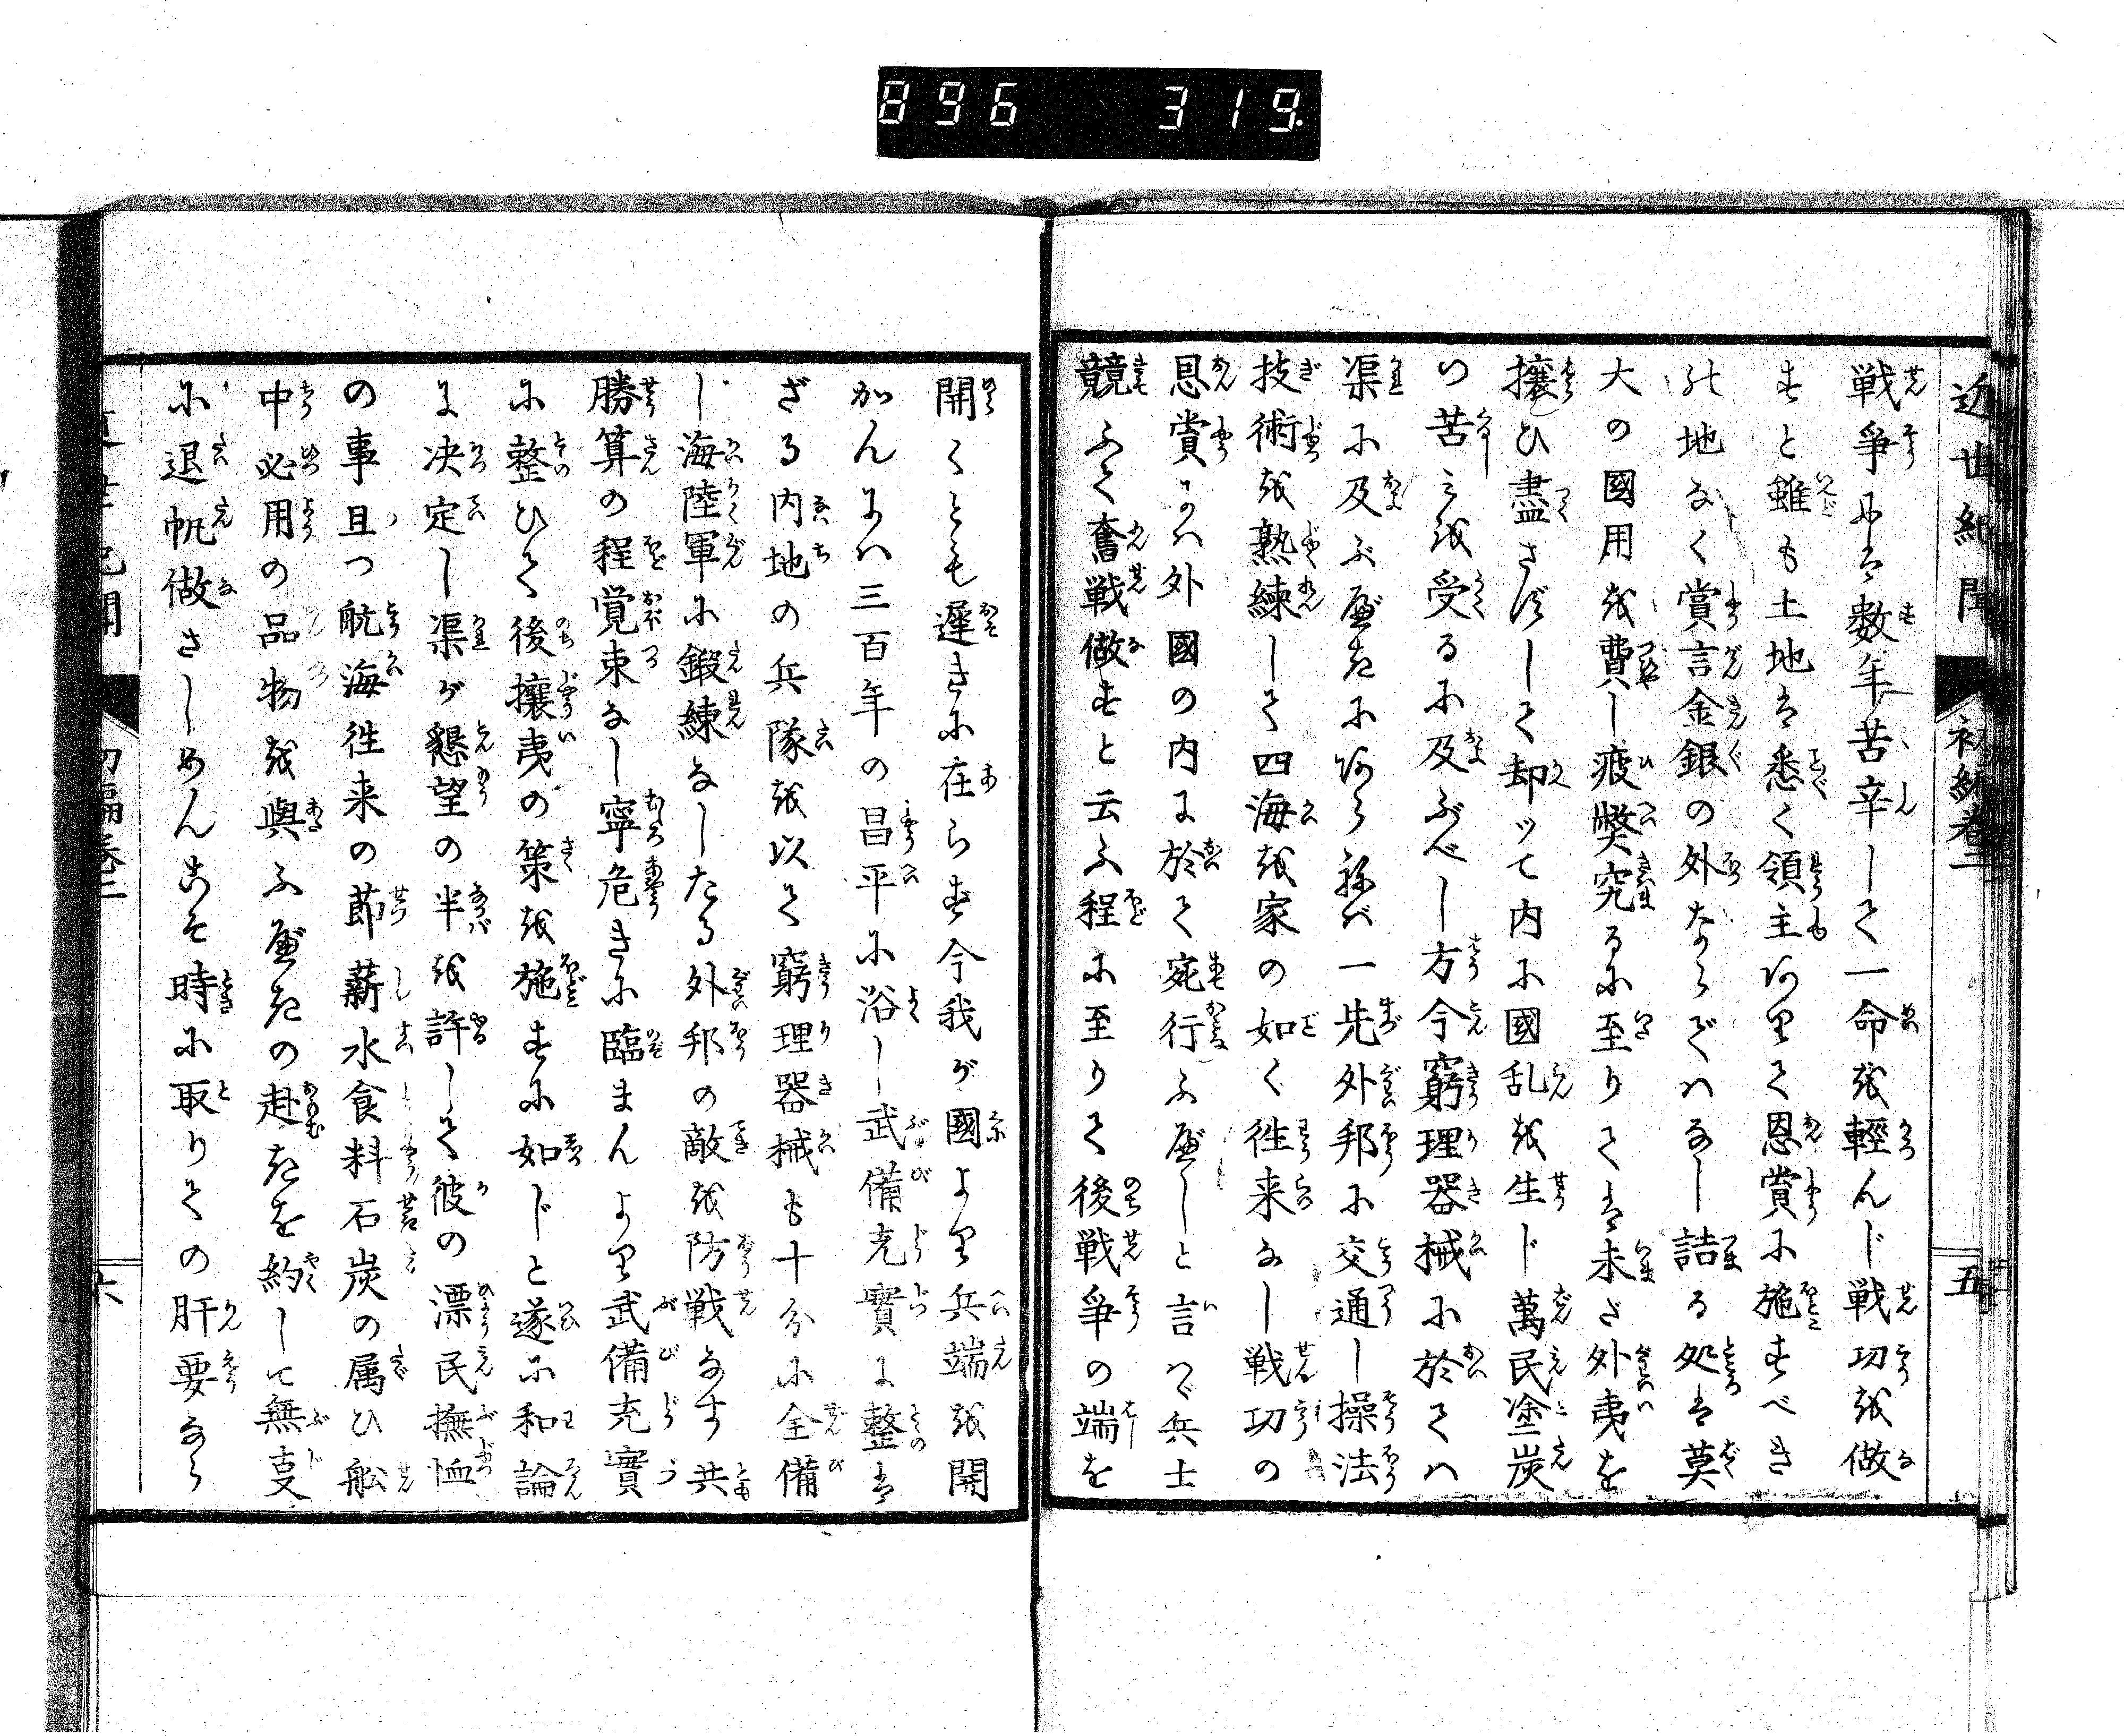 896 319.
近世紀聞 初編巻二 五
戦爭よは数年苦辛して一命を軽んじ戦功を做
すと雖も土地は悉く領主ありて恩賞に施すべき
の地なく賞言金銀の外ならではなし詰る処は莫
大の國用を費し疲弊究るに至りては未ざ外夷を
攘ひ盡さずして却ッて内に國乱を生じ萬民塗炭
の苦しみを受るに及ぶべし方今窮理器械に於ては
渠に及ぶ可きに非らねば一先外邦に交通し操法
技術を熟練して四海を家の如く徃来なし戦功の
恩賞には外國の内に於て宛行ふ可しと言へば兵士
競ふて奮戦做すと云ふ程に至りて後戦爭の端を
開くとも遅きに在らず今我が國より兵端を開
かんには三百年の昌平に浴し武備充實に整は
ざる内地の兵隊を以て窮理器械も十分に全備
し海陸軍に鍛練なしたる外邦の敵を防戦なす共
勝算の程覚束なし寧危きに臨まんより武備充實
に整ひて後攘夷の策を施すに如じと遂に和論
に决定し渠が懇望の半を許して彼の漂民撫恤
の事且つ航海徃来の節薪水食料石炭の属ひ舩
中必用の品物を與ふ可きの赴きを約して無事
に退帆做さしめんこそ時に取りての肝要なら
初編巻二 六